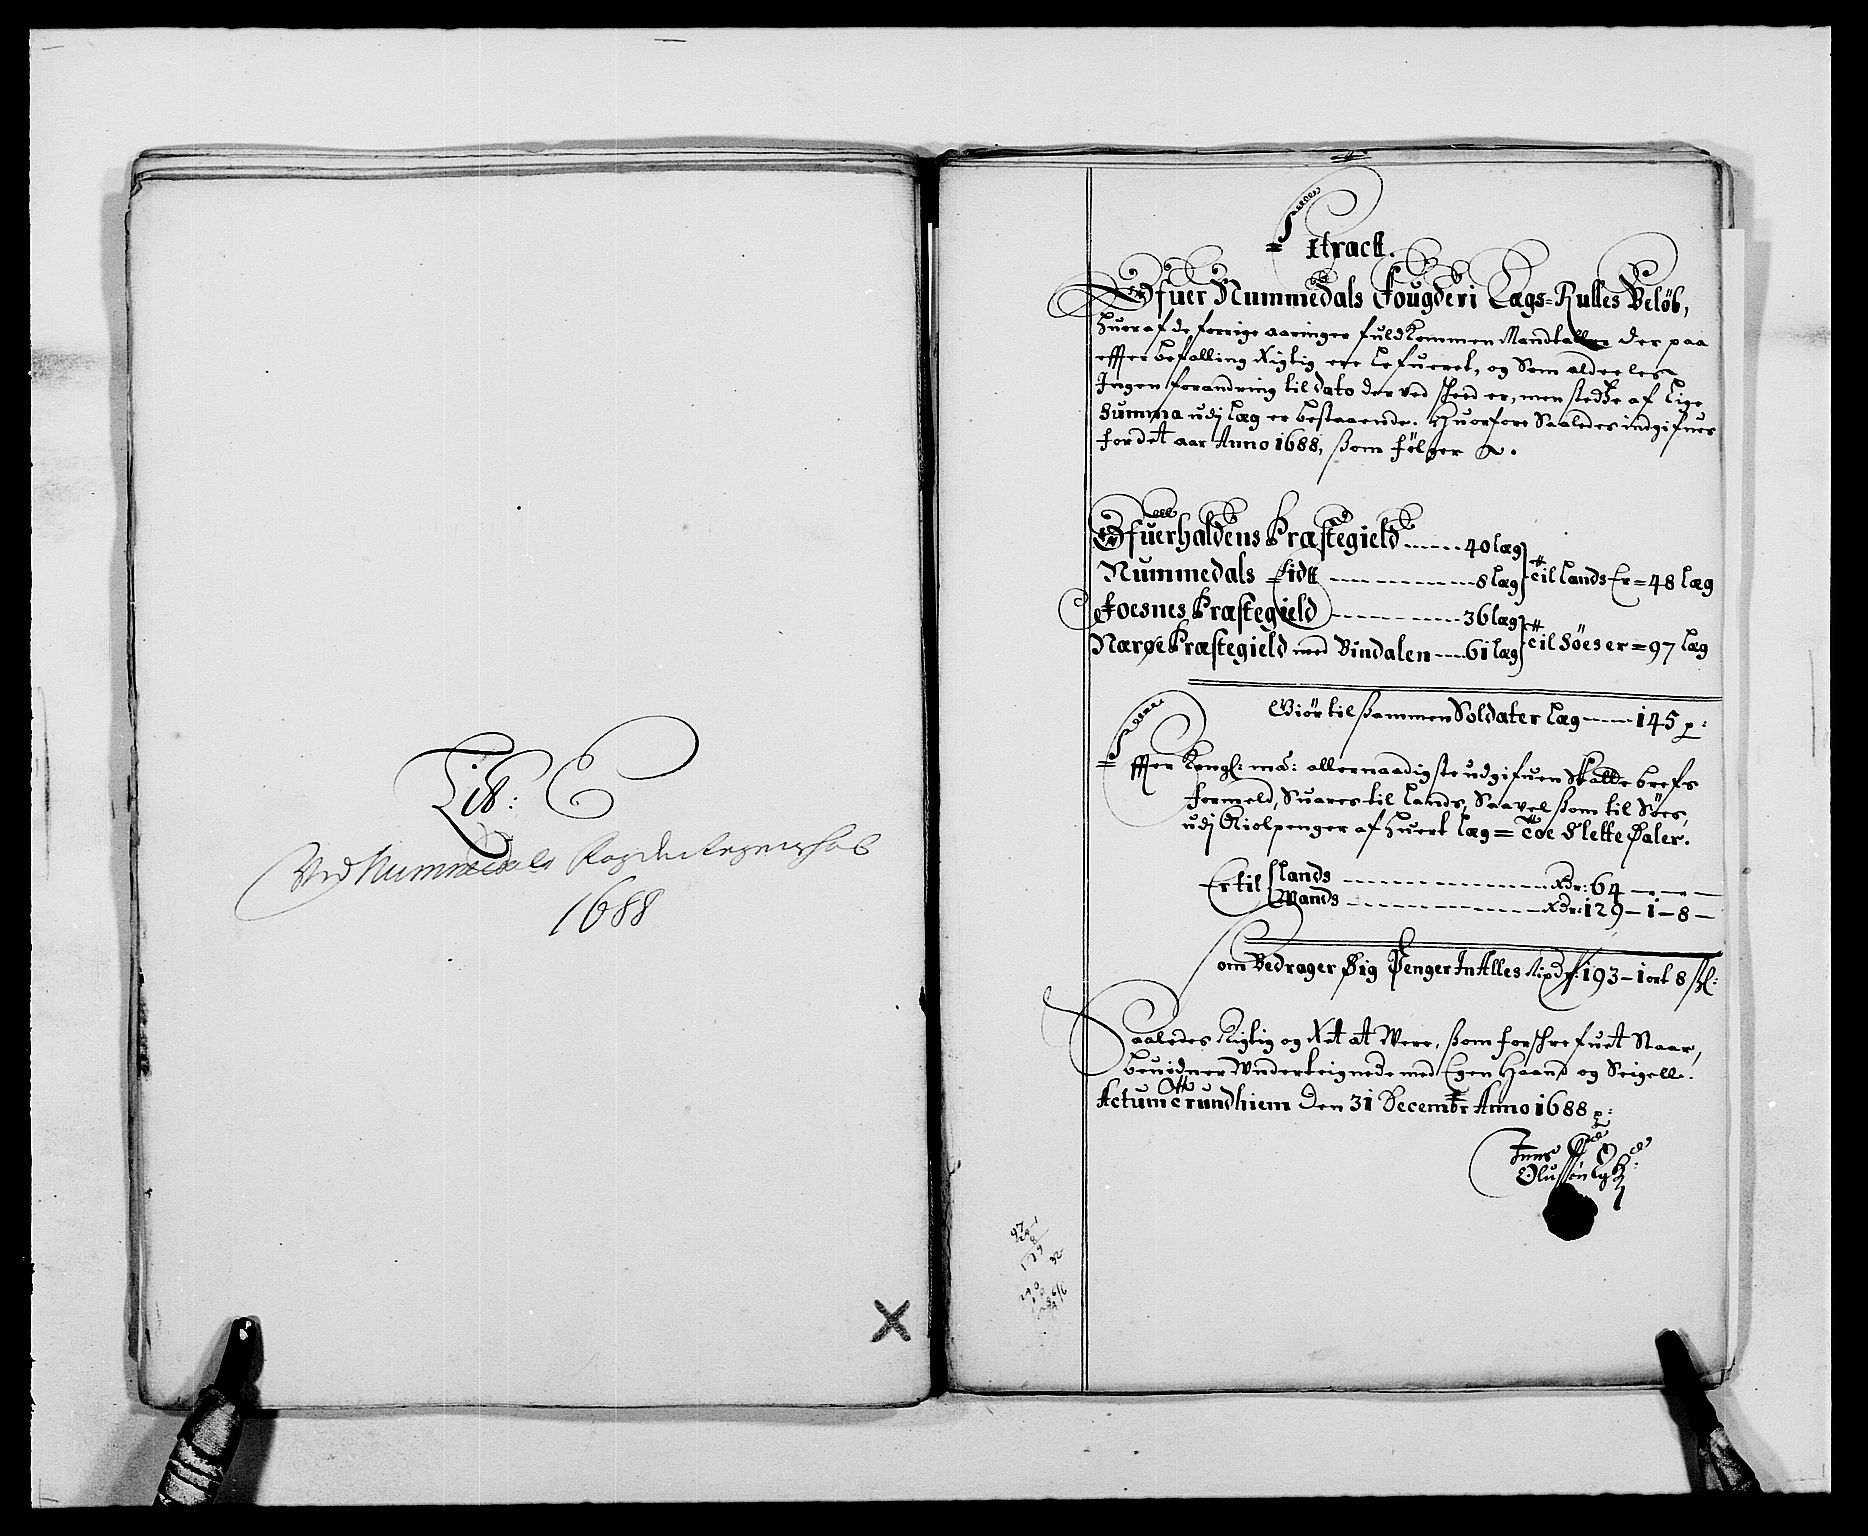 Lit: E
Ved Nummedals Fogderi Regenskab
1688
Extract.
Ofuer Nummedals Fougderi Lægs=Rulles Beløb,
huoraf de forrige aaringer fuldkommen Mandtaller der paa
effter befalling Rigtig ere Lefueret, og Som aldeeles
Ingen forandring til dato der ved skeed er, men stedtze af Lige
Summa udj Læg er bestaaende. Huorfore Saaledes indgifues
for det aar Anno 1688, som følger
Ofuerhaldens Præstegield ----- 40 læg
Nummedals Eidtt ----- 8 læg
til lands Er = 48 læg
Foesnes Præstegield ----- 36 læg
Nærøe Præstegield med Bindalen ---- 61 læg
til Søes er = 97 læg
Giør til sammen Soldater læg ---- 145 p:
Effter Kongl: may: allernaadigste udgifuen Skatte brefs
formeld, Suares til Lands, Saavel som til Søes,
udj Kiolpenger af huert læg = Toe Slette Daler.
Er til Lands ----- Rdr: 64 - - -
Mands ----- Rdr: 129 - 1 - 8 -
Som Bedrager Sig Penger In Alles Rixdr: 193 - 1 ort 8 sk:
Saaledes Rigtig og Ret at Were, som forskrefuet Staar,
beuidner Underteignede med Egen Haand og Seigell.
Actum Trundhiem Den 31 Decembr Anno 1688 p: